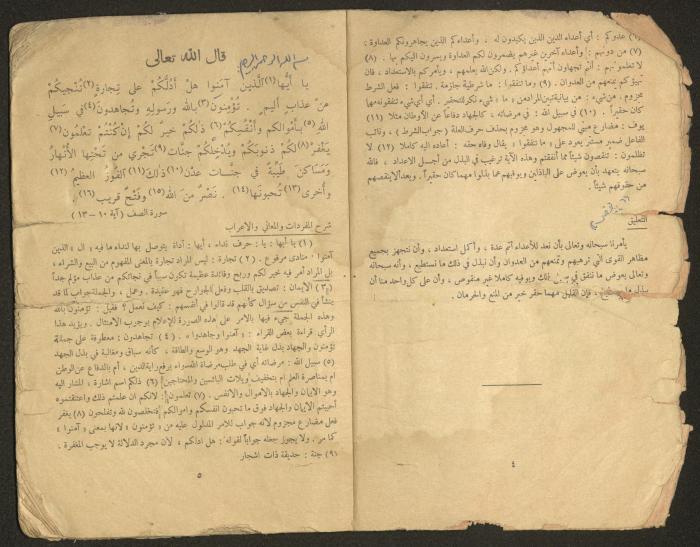 (٦) عدوكم : أي أعداء الدين الذين يكيدون له . وأعداءكم الذين يجاهرونكم العداوة :
(٧) من دونهم : وأعداء آخرين غيرهم يضمرون لكم العداوة ويسرون اليكم بها . (٨)
لا تعلمونهم : أنتم تجهلون أنهم أعداؤكم . ولكن الله يعلمهم ، ويأمركم بالاستعداد ، فان
تهيؤكم يمنعهم من العدوان . (٩) وما تنفقوا : ما : شرطية جازمة . تنفقوا : فعل الشرط
مجزوم . من شيء : من بيانية
كان حقيراً . (١٠) في سبيل الله : في مرضاته ، كالجهاد دفاعاً عن الأوطان مثلا (١١)
يوف : مضارع مبني للمجهول وهو مجزوم بحذف حرف العلة (جواب الشرط) ، ونائب
الفاعل ضمير مستتر يعود على « ما تنفقوا » يقال وفاه حقه : أعاده اليه كاملا (١٢) لا
تظلمون : تنقصون شيئاً مما أنفقتم وهذه الآية ترغيب في البذل من أجل الاعداد ، فالله
سبحانه يتعهد بأن يعوض على الباذلين ويوفيهم عما بذلوا مهما كان حقيراً . وبعد ألا ينقصهم
من حقوقهم شيئاً .
التعليق
يأمرنا سبحانه وتعالى بأن نعد للأعداء أتم عدة ، وأكمل استعداد ، وأن نتجهز بجميع
مظاهر القوى التي ترهبهم وتمنعهم من العدوان وأن نبذل في ذلك ما نستطيع ، وأنه سبحانه
وتعالى يعوض ما ننفق في سبيل ذلك ويوفيه كاملا غير منقوص ، وأن على كل واحد منا أن
يبذل ما يستطيع ، فإن القليل مهما حقر خير من المنع والحرمان .
٤
قال الله تعالى
بسم الله الرحمن الرحيم
يا أيُّها(١) الَّذين آمَنوا هلْ أَدُلُّكُمْ على تِجارةٍ(٢) تُنْجيكُمْ
مِنْ عذابٍ أليمٍ . تُؤمِنونَ(٣) باللهِ ورَسولِهِ وتُجاهدونَ(٤) في سَبيلِ
اللهِ(٥) بـأَمْوالِكم وأَنْفُسِكُمْ(٦) ذلكُمْ خيرٌ لكُمْ إنْ كُنْتُمْ تعْلَمُونَ(٧)
يَغْفِرْ(٨) لَكُمْ ذنوبَكُمْ ويُدْخِلْكُمْ جنّات(٩) تَجْري من تَحْتِها الأَنْهارُ
ومَساكنَ طيِّبةً في جنّات عَدْنٍ(١٠) ذلكَ(١١) الفَوْزُ العظيمُ(١٢)
وأُخرى(١٣) تُحبّونَها(١٤) . نَصْرٌ مِنَ اللهِ(١٥) وفَتْحٌ قَريب(١٦) .
سورة الصف (آية ١٠ - ١٣)
شرح المفردات والمعاني والاعراب
(١) يا أيها : يا : حرف نداء ، أيها : أداة يتوصل بها لنداء ما فيه « ال » الذين
آمنوا : منادى مرفوع . (٢) تجارة : ليس المراد تجارة بالمعنى المفهوم من البيع والشراء ،
بل المراد أمر فيه خير لكم وربح وفائدة عظيمة تكون سبباً في نجاتكم من عذاب مؤلم جداً
(٣) الايمان : تصديق بالقلب وفعل الجوارح فهو عقيدة . وعمل ، والجملة جواب لما قد
ينشأ في النفس من سؤال كأنهم قد قالوا في أنفسهم : كيف نعمل ؟ فقيل : تؤمنون بالله
وهذه الجملة جيء فيها بالامر على هذه الصورة للإعلام بوجوب الامتثال . ويؤيد هذا
الرأي قراءة بعض القراء : « آمنوا وجاهدوا » . (٤) تجاهدون : معطوفة على جملة
تؤمنون والجهاد بذل غاية الجهد وهو الوسع والطاقة ، كأنه سباق ومغالبة في بذل الجهد
(٥) سبيل الله : مرضاته أي في طلب مرضاة الله سواء برفع راية الدين ، أم بالدفاع عن الوطن
ام بمناصرة العلم ام بتخفيف ويلات البائسين والمحتاجين (٦) ذلكم اسم اشارة ، المشار اليه
وهو الايمان والجهاد بالاموال والانفس . (٧) تعلمون : لانكم ان علمتم ذلك واعتقدتموه
أحببتم الايمان والجهاد فوق ما تحبون انفسكم واموالكم فتخلصون لله وتفلحون (٨) يغفر
فعل مضارع مجزوم لانه جواب للامر المدلول عليه من « تؤمنون » لانها بمعنى « آمنوا »
كما مر . ولا يجوز جعله جواباً لقوله : هل ادلكم ، لان مجرد الدلالة لا يوجب المغفرة .
(٩) جنة : حديقة ذات اشجار
٥